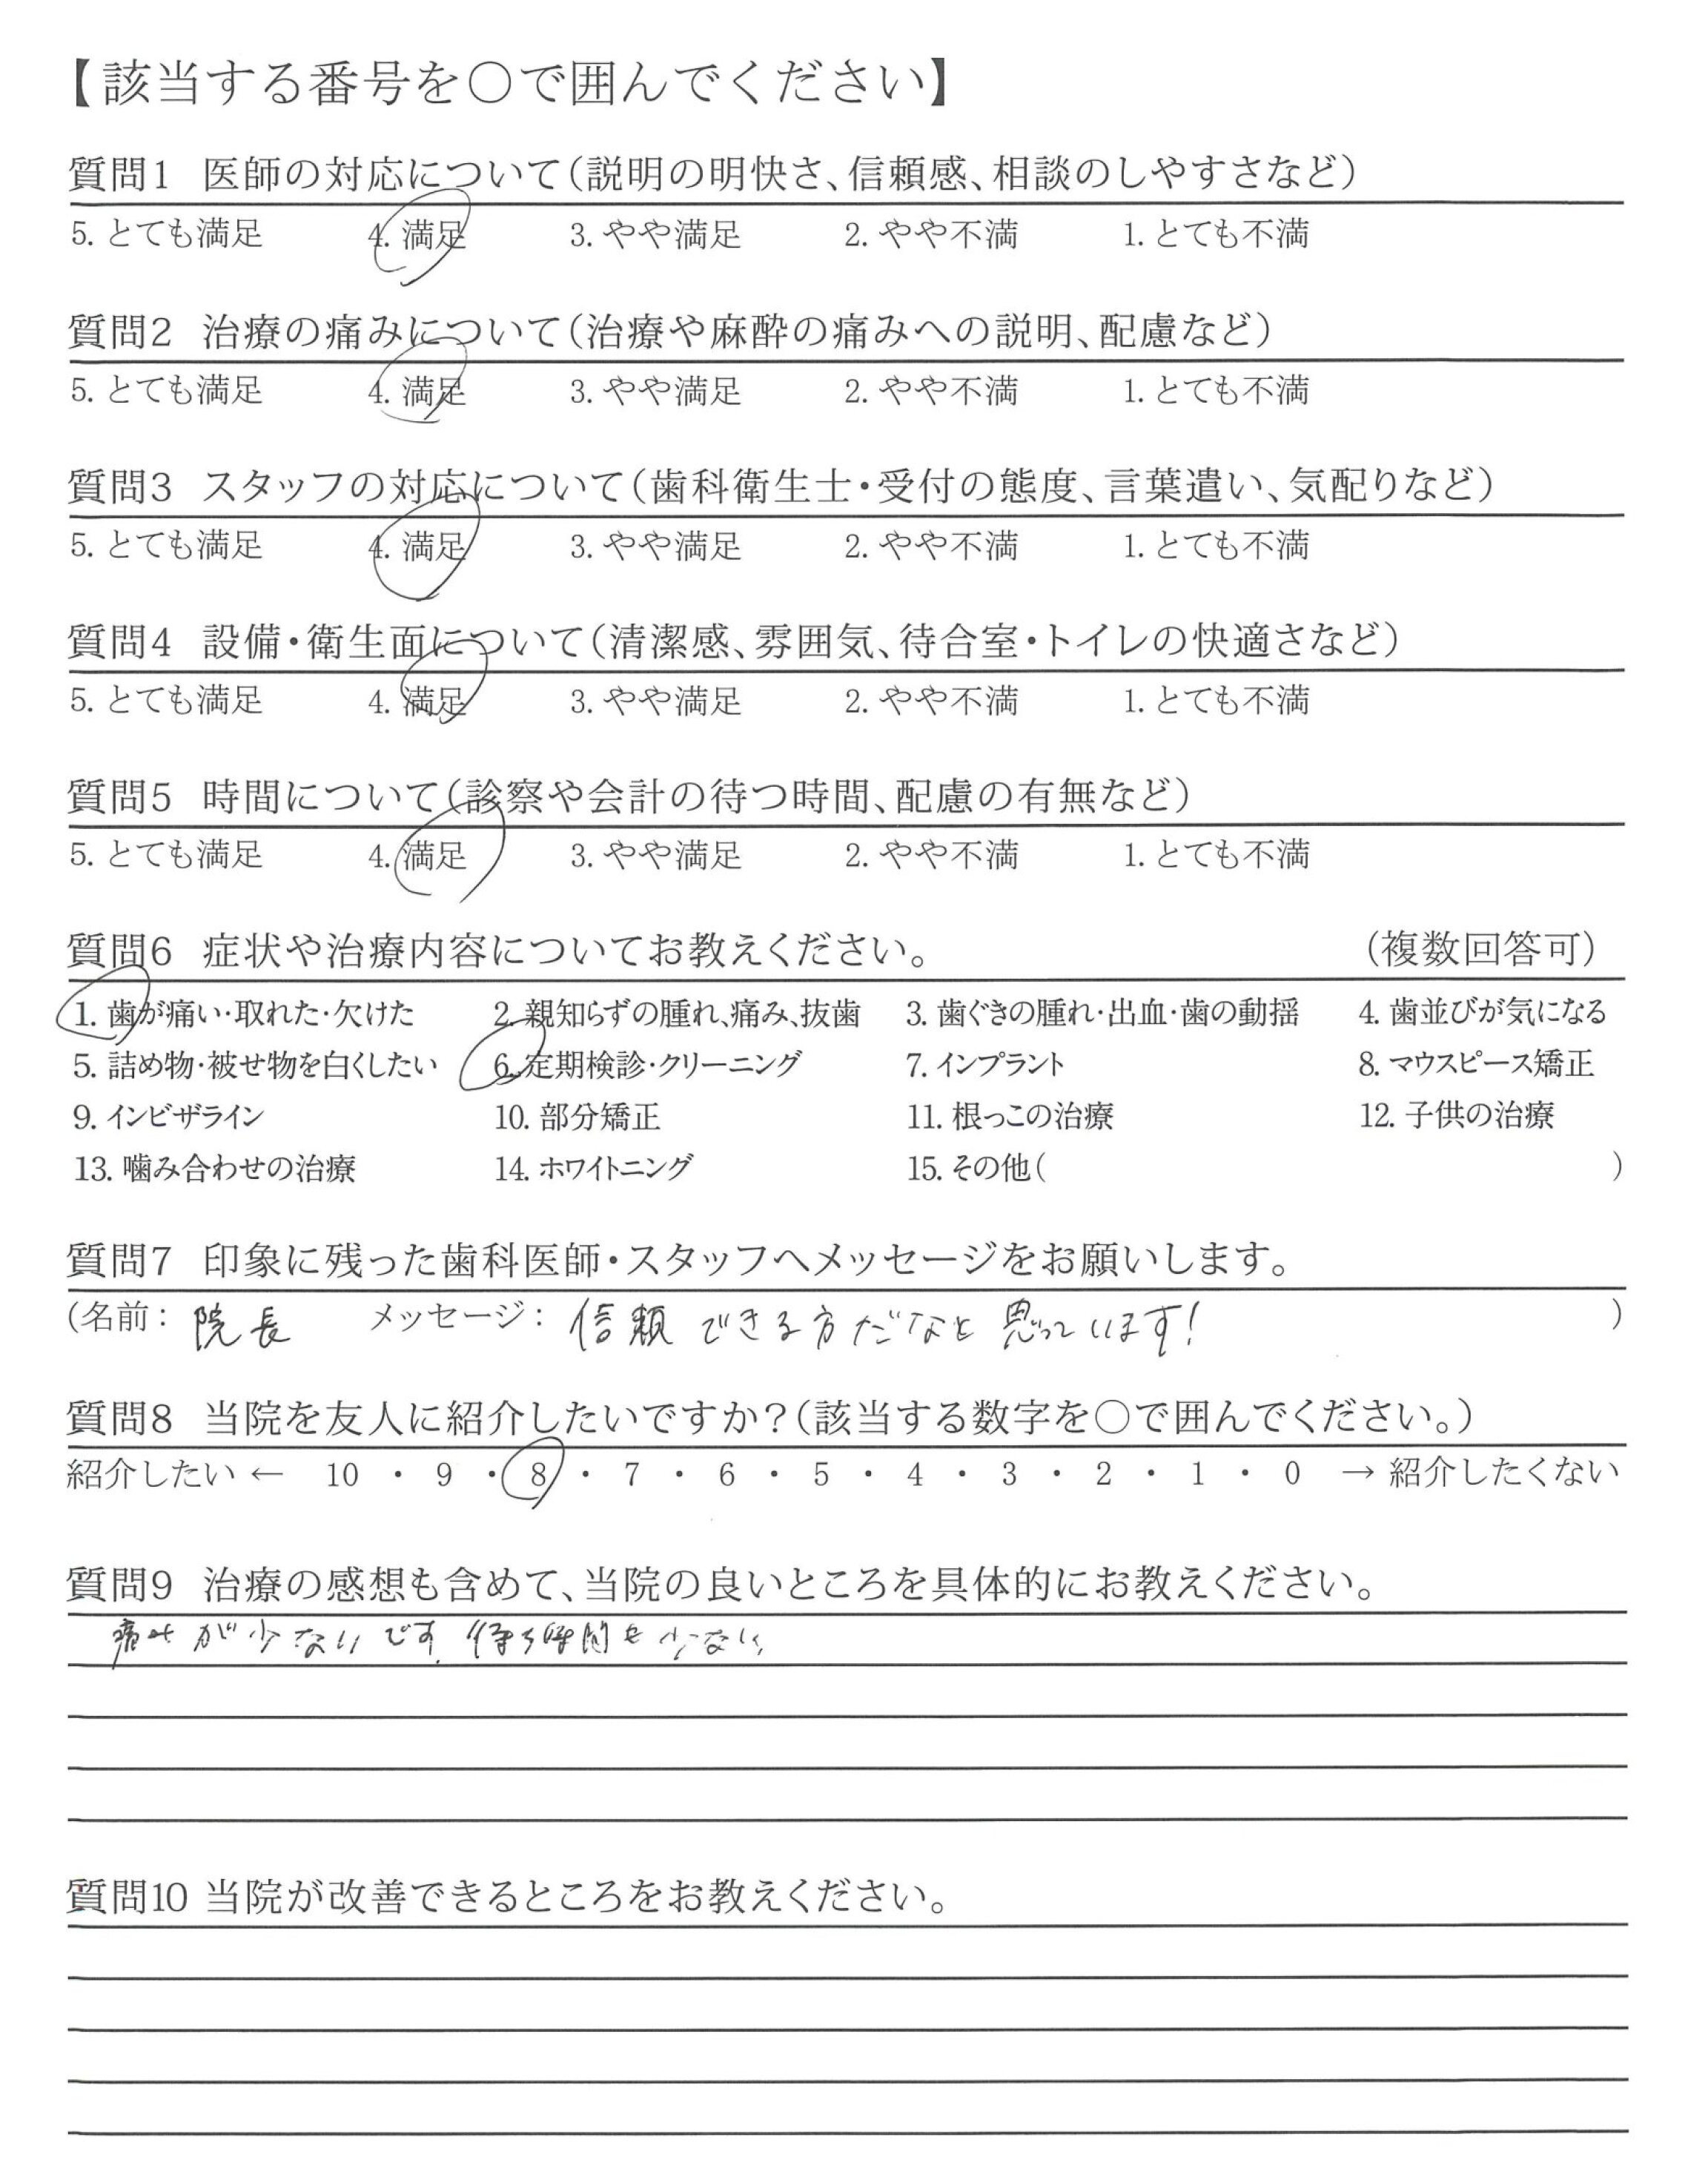 【該当する番号を〇で囲んでください】
質問1 医師の対応について(説明の明快さ、信頼感、相談のしやすさなど)
5. とても満足 4. 満足 3. やや満足 2. やや不満 1. とても不満
質問2 治療の痛みについて(治療や麻酔の痛みへの説明、配慮など)
5. とても満足 4. 満足 3. やや満足 2. やや不満 1. とても不満
質問3 スタッフの対応について(歯科衛生士・受付の態度、言葉遣い、気配りなど)
5. とても満足 4. 満足 3. やや満足 2. やや不満 1. とても不満
質問4 設備・衛生面について(清潔感、雰囲気、待合室・トイレの快適さなど)
5. とても満足 4. 満足 3. やや満足 2. やや不満 1. とても不満
質問5 時間について(診察や会計の待つ時間、配慮の有無など)
5. とても満足 4. 満足 3. やや満足 2. やや不満 1. とても不満
質問6 症状や治療内容についてお教えください。 (複数回答可)
1. 歯が痛い・取れた・欠けた 2. 親知らずの腫れ、痛み、抜歯 3. 歯ぐきの腫れ・出血・歯の動揺 4. 歯並びが気になる
5. 詰め物・被せ物を白くしたい 6. 定期検診・クリーニング 7. インプラント 8. マウスピース矯正
9. インビザライン 10. 部分矯正 11. 根っこの治療 12. 子供の治療
13. 噛み合わせの治療 14. ホワイトニング 15. その他( )
質問7 印象に残った歯科医師・スタッフへメッセージをお願いします。
(名前: 院長 メッセージ: 信頼できる方だなと思っています! )
質問8 当院を友人に紹介したいですか?(該当する数字を〇で囲んでください。)
紹介したい ← 10 ・ 9 ・ 8 ・ 7 ・ 6 ・ 5 ・ 4 ・ 3 ・ 2 ・ 1 ・ 0 → 紹介したくない
質問9 治療の感想も含めて、当院の良いところを具体的にお教えください。
痛みが少ないです。待ち時間も少ない
質問10 当院が改善できるところをお教えください。